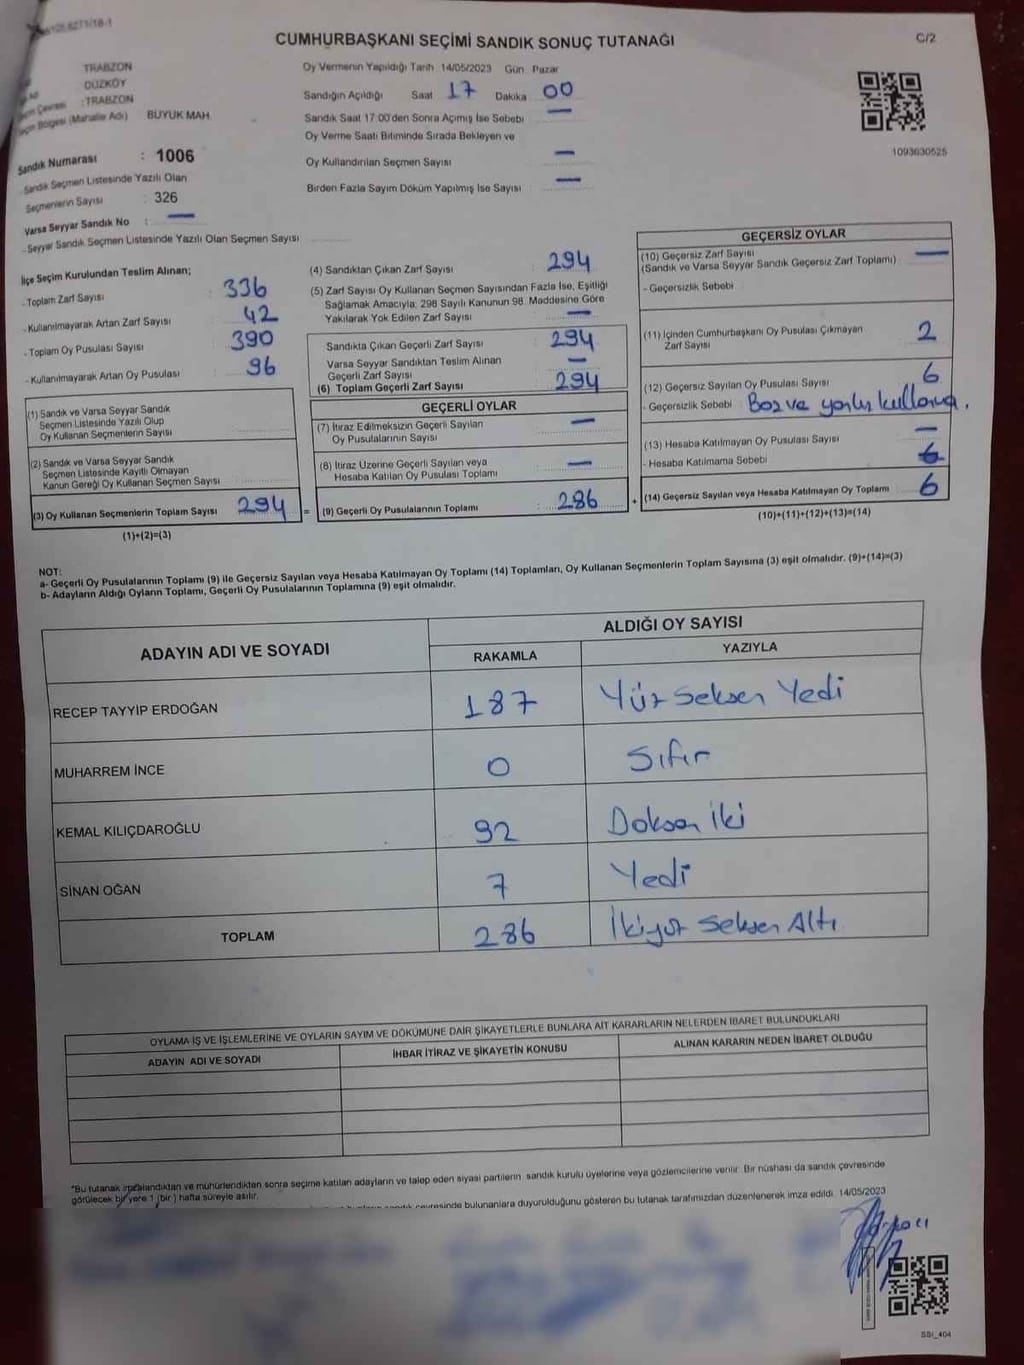 CUMHURBAŞKANI SEÇİMİ SANDIK SONUÇ TUTANAĞI
C/2
TRABZON
DÜZKÖY
:TRABZON
Bölgesi (Mahalle Adı) BÜYÜK MAH
Sandık Numarası : 1006
Sandık Seçmen Listesinde Yazılı Olan
Seçmenlerin Sayısı : 326
Varsa Seyyar Sandık No : —
- Seyyar Sandık Seçmen Listesinde Yazılı Olan Seçmen Sayısı
Oy Vermenin Yapıldığı Tarih 14/05/2023 Gün Pazar
Sandığın Açıldığı Saat 17 Dakika 00
Sandık Saat 17:00'den Sonra Açımış İse Sebebi —
Oy Verme Saati Bitiminde Sırada Bekleyen ve
Oy Kullandırılan Seçmen Sayısı —
Birden Fazla Sayım Döküm Yapılmış İse Sayısı —
1093630525
İlçe Seçim Kurulundan Teslim Alınan;
- Toplam Zarf Sayısı 336
- Kullanılmayarak Artan Zarf Sayısı 42
- Toplam Oy Pusulası Sayısı 390
- Kullanılmayarak Artan Oy Pusulası 96
(1) Sandık ve Varsa Seyyar Sandık
Seçmen Listesinde Yazılı Olup
Oy Kullanan Seçmenlerin Sayısı
(2) Sandık ve Varsa Seyyar Sandık
Seçmen Listesinde Kayıtlı Olmayan
Kanun Gereği Oy Kullanan Seçmen Sayısı
(3) Oy Kullanan Seçmenlerin Toplam Sayısı 294
(1)+(2)=(3)
(4) Sandıktan Çıkan Zarf Sayısı : 294
(5) Zarf Sayısı Oy Kullanan Seçmen Sayısından Fazla İse, Eşitliği
Sağlamak Amacıyla; 298 Sayılı Kanunun 98. Maddesine Göre
Yakılarak Yok Edilen Zarf Sayısı —
Sandıkta Çıkan Geçerli Zarf Sayısı 294
Varsa Seyyar Sandıktan Teslim Alınan
Geçerli Zarf Sayısı —
(6) Toplam Geçerli Zarf Sayısı 294
GEÇERLİ OYLAR
(7) İtiraz Edilmeksizin Geçerli Sayılan
Oy Pusulalarının Sayısı —
(8) İtiraz Üzerine Geçerli Sayılan veya
Hesaba Katılan Oy Pusulası Toplamı —
= (9) Geçerli Oy Pusulalarının Toplamı 286 +
GEÇERSİZ OYLAR
(10) Geçersiz Zarf Sayısı —
(Sandık ve Varsa Seyyar Sandık Geçersiz Zarf Toplamı)
- Geçersizlik Sebebi
(11) İçinden Cumhurbaşkanı Oy Pusulası Çıkmayan
Zarf Sayısı 2
(12) Geçersiz Sayılan Oy Pusulası Sayısı 6
- Geçersizlik Sebebi Boş ve yanlış kullanma.
(13) Hesaba Katılmayan Oy Pusulası Sayısı —
- Hesaba Katılmama Sebebi
(14) Geçersiz Sayılan veya Hesaba Katılmayan Oy Toplamı 6
(10)+(11)+(12)+(13)=(14)
NOT:
a- Geçerli Oy Pusulalarının Toplamı (9) ile Geçersiz Sayılan veya Hesaba Katılmayan Oy Toplamı (14) Toplamları, Oy Kullanan Seçmenlerin Toplam Sayısına (3) eşit olmalıdır. (9)+(14)=(3)
b- Adayların Aldığı Oyların Toplamı, Geçerli Oy Pusulalarının Toplamına (9) eşit olmalıdır.
ADAYIN ADI VE SOYADI
ALDIĞI OY SAYISI
RAKAMLA YAZIYLA
RECEP TAYYİP ERDOĞAN 187 Yüz Seksen Yedi
MUHARREM İNCE 0 Sıfır
KEMAL KILIÇDAROĞLU 92 Doksan İki
SİNAN OĞAN 7 Yedi
TOPLAM 286 İkiyüz Seksen Altı
OYLAMA İŞ VE İŞLEMLERİNE VE OYLARIN SAYIM VE DÖKÜMÜNE DAİR ŞİKAYETLERLE BUNLARA AİT KARARLARIN NELERDEN İBARET BULUNDUKLARI
ADAYIN ADI VE SOYADI İHBAR İTİRAZ VE ŞİKAYETİN KONUSU ALINAN KARARIN NEDEN İBARET OLDUĞU
*Bu tutanak imzalandıktan ve mühürlendikten sonra seçime katılan adayların ve talep eden siyasi partilerin sandık kurulu üyelerine veya gözlemcilerine verilir. Bir nüshası da sandık çevresinde
görülecek bir yere 1 (bir ) hafta süreyle asılır.
sandık çevresinde bulunanlara duyurulduğunu gösteren bu tutanak tarafımızdan düzenlenerek imza edildi. 14/05/2023
SSI_404